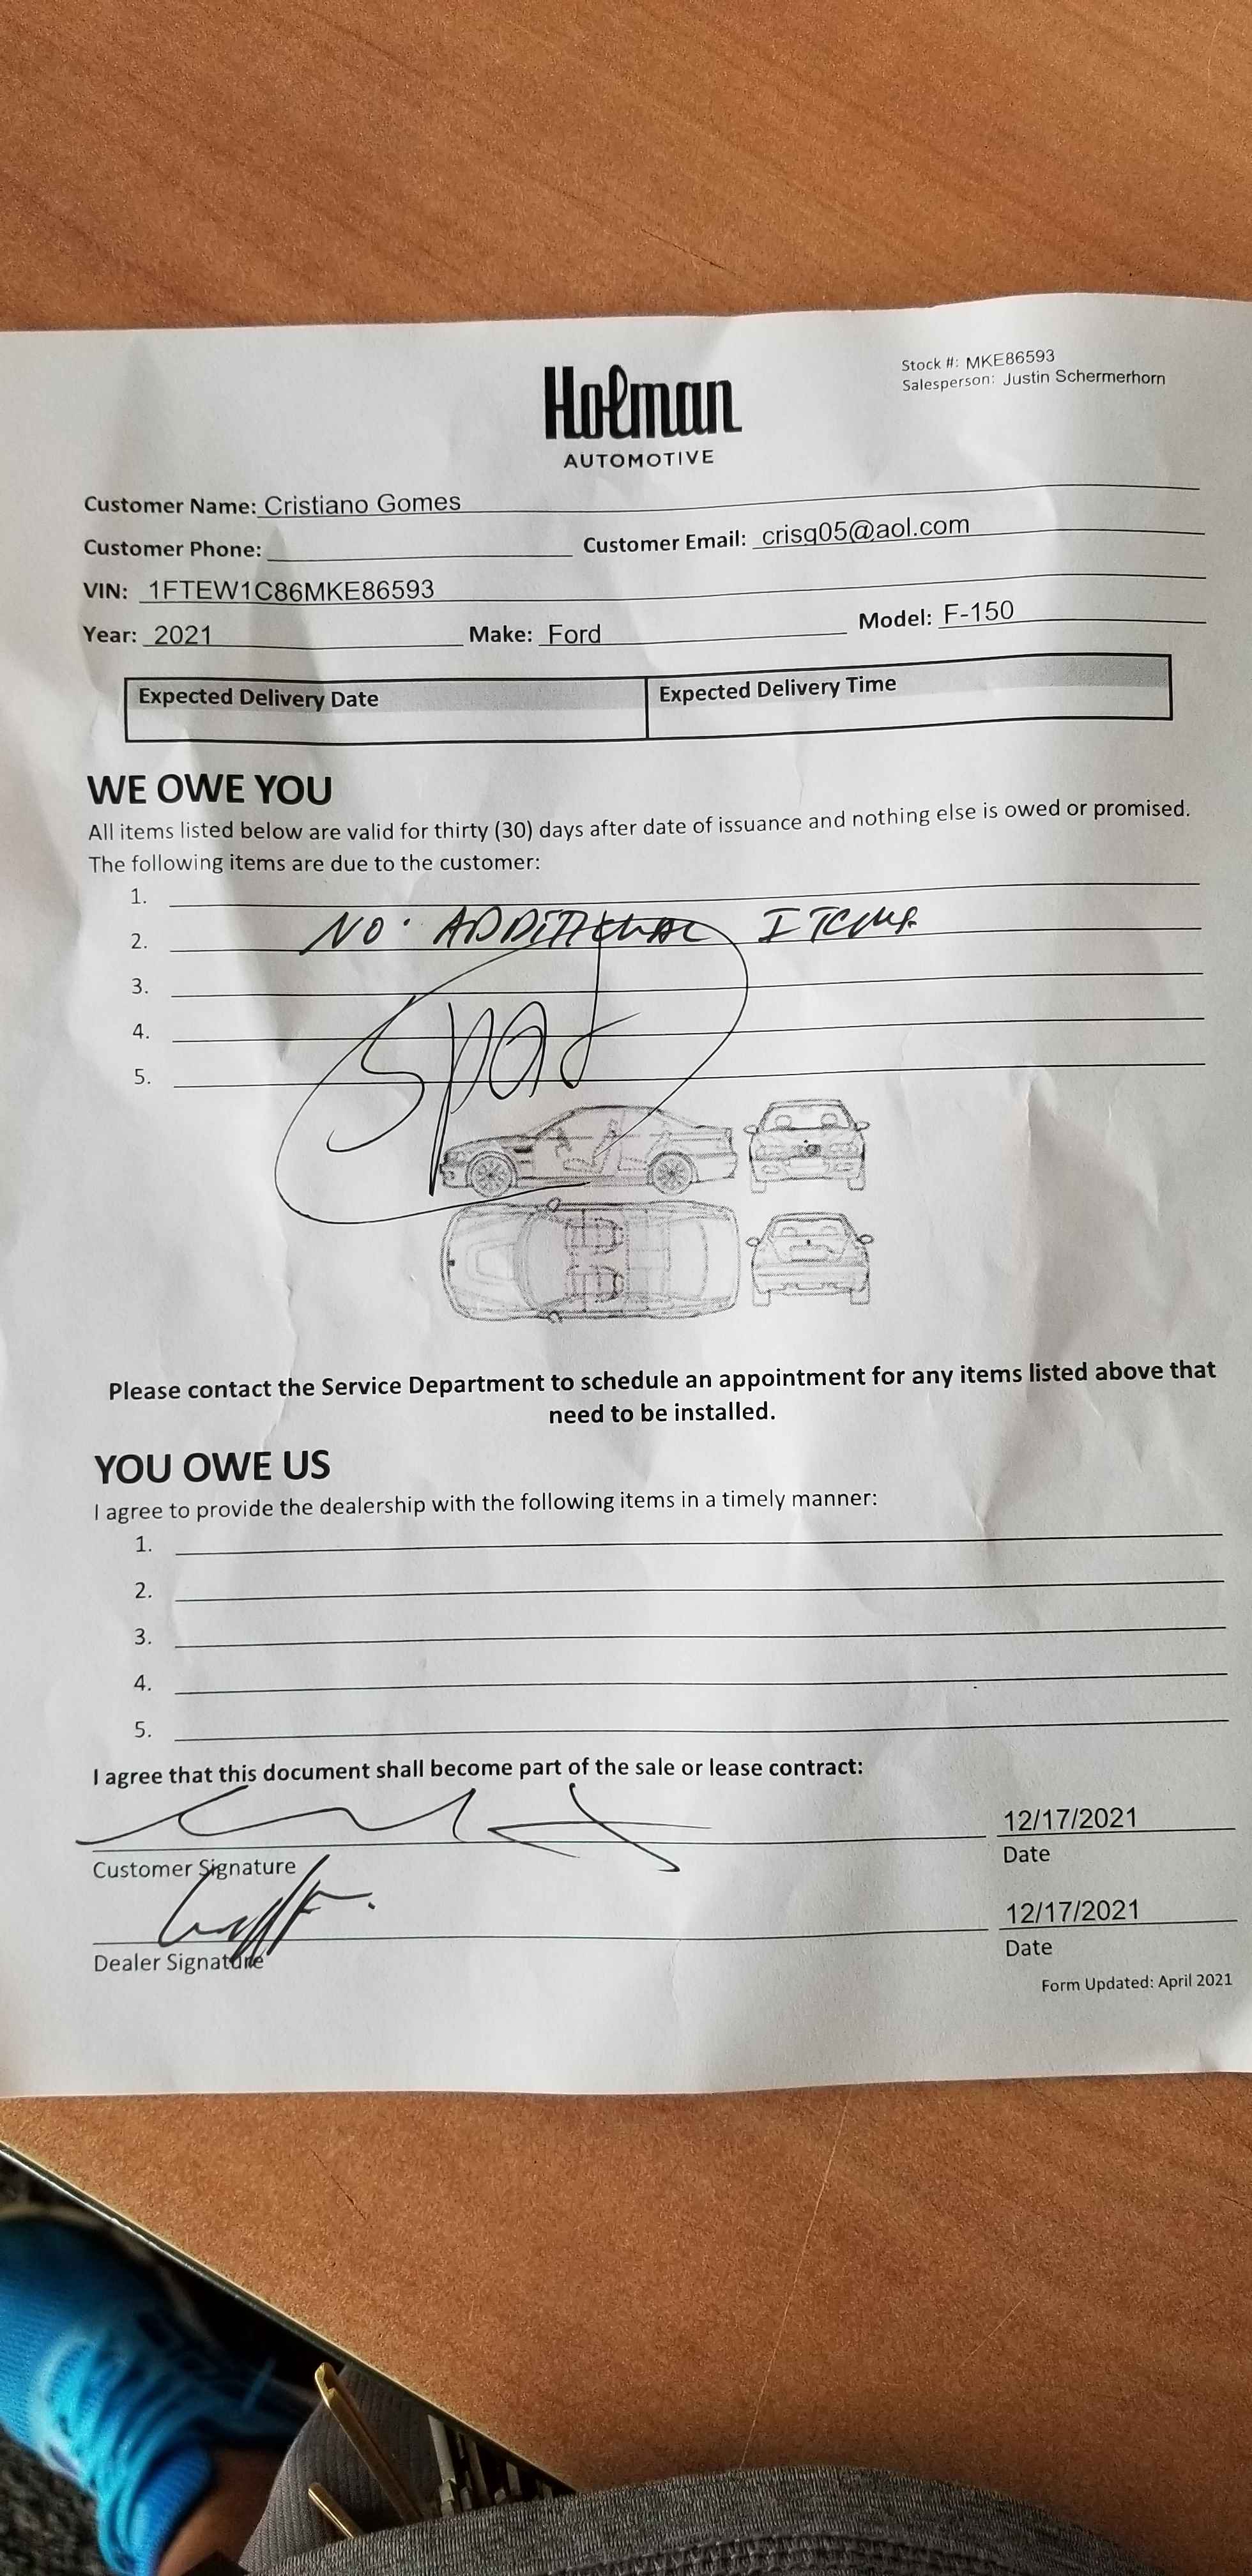 Stock #: MKE86593
Salesperson: Justin Schermerhorn
Holman
AUTOMOTIVE
Customer Name: Cristiano Gomes
Customer Phone: Customer Email: crisg05@aol.com
VIN: 1FTEW1C86MKE86593
Year: 2021 Make: Ford Model: F-150
Expected Delivery Date Expected Delivery Time
WE OWE YOU
All items listed below are valid for thirty (30) days after date of issuance and nothing else is owed or promised.
The following items are due to the customer:
1.
2. NO. ADDITIONAL ITEMS
3.
4. Spot
5.
Please contact the Service Department to schedule an appointment for any items listed above that
need to be installed.
YOU OWE US
I agree to provide the dealership with the following items in a timely manner:
1.
2.
3.
4.
5.
I agree that this document shall become part of the sale or lease contract:
12/17/2021
Customer Signature Date
12/17/2021
Dealer Signature Date
Form Updated: April 2021